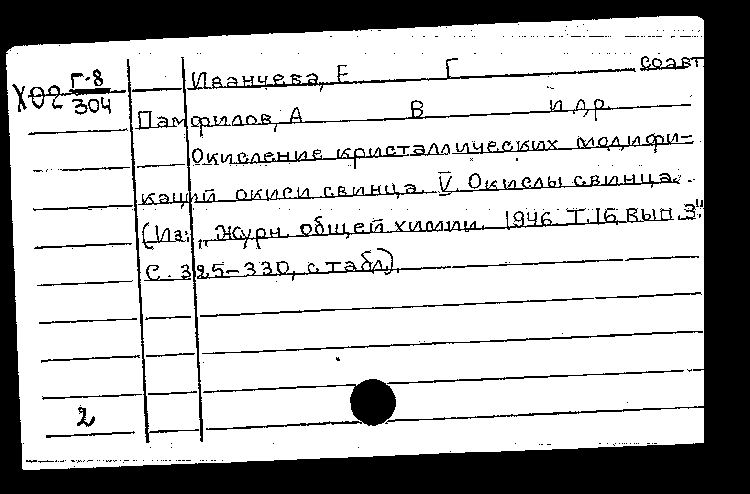 Иванчева, Е Г соавт
Х02 Г-8
304
Памфилов, А В и др.
Окисление кристаллических модифи-
каций окиси свинца. V. Окислы свинца.
(Из: „Журн. общей химии. 1946. Т.16, вып. 3".
С. 325-330, с табл.).
2